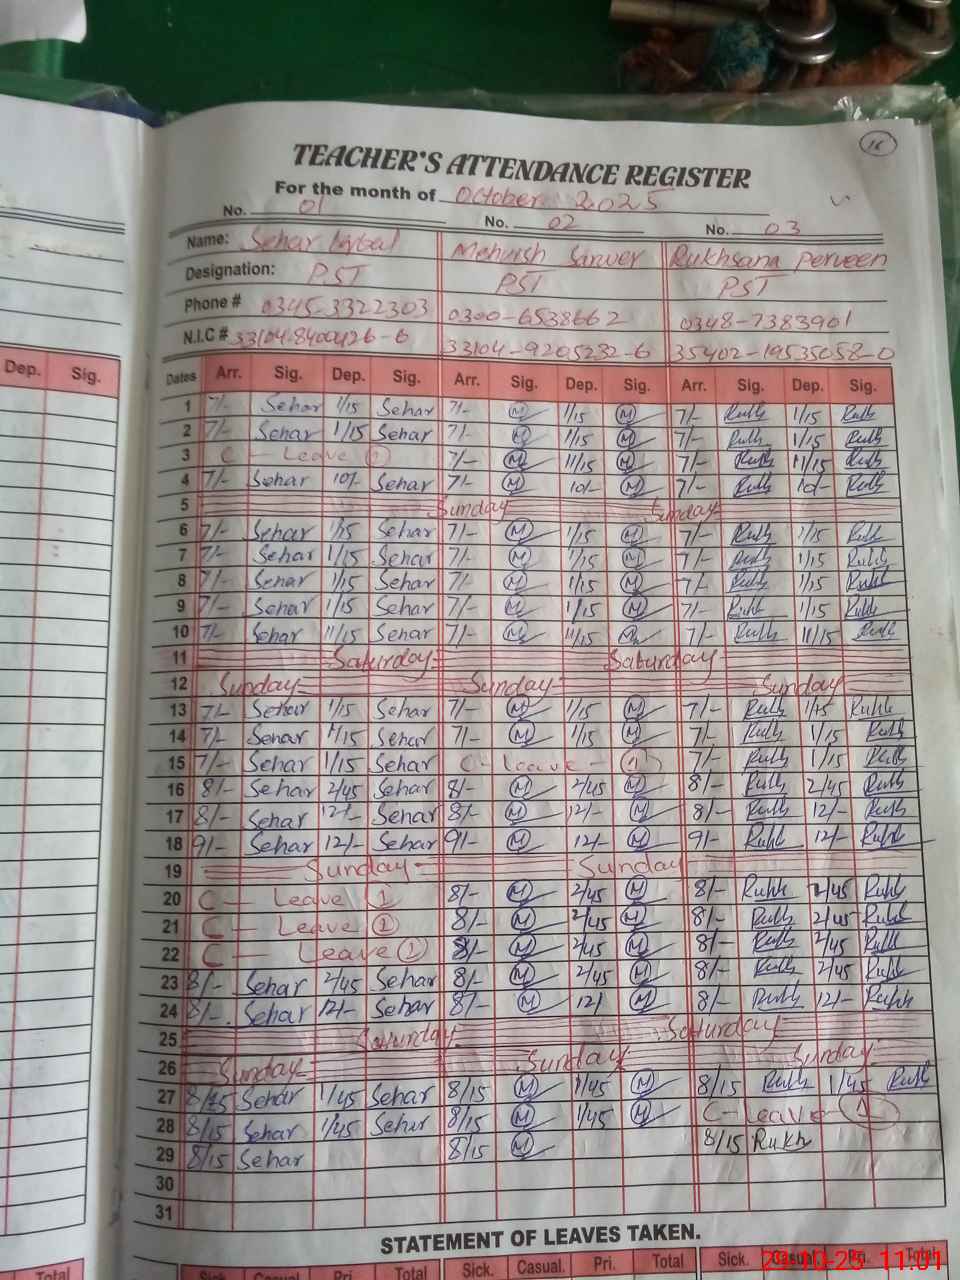 16
TEACHER'S ATTENDANCE REGISTER
For the month of October 2025
No. 01 No. 02 No. 03
Name: Sehar Iqbal Mehwish Sarwer Rukhsana Perveen
Designation: PST PST PST
Phone # 0345-3322303 0300-6538662 0348-7383901
N.I.C # 33104-8400426-6 33104-9205232-6 35402-19535058-0
Dep. Sig.
Dates Arr. Sig. Dep. Sig. Arr. Sig. Dep. Sig. Arr. Sig. Dep. Sig.
1 7/- Sehar 1/15 Sehar 7/- M 1/15 M 7/- Rukh 1/15 Rukh
2 7/- Sehar 1/15 Sehar 7/- M 1/15 M 7/- Rukh 1/15 Rukh
3 C - Leave 1 7/- M 11/15 M 7/- Rukh 11/15 Rukh
4 7/- Sehar 10/- Sehar 7/- M 10/- M 7/- Rukh 10/- Rukh
5 Sunday Sunday
6 7/- Sehar 1/15 Sehar 7/- M 1/15 M 7/- Rukh 1/15 Rukh
7 7/- Sehar 1/15 Sehar 7/- M 1/15 M 7/- Rukh 1/15 Rukh
8 7/- Sehar 1/15 Sehar 7/- M 1/15 M 7/- Rukh 1/15 Rukh
9 7/- Sehar 1/15 Sehar 7/- M 1/15 M 7/- Rukh 1/15 Rukh
10 7/- Sehar 11/15 Sehar 7/- M 11/15 M 7/- Rukh 11/15 Rukh
11 Saturday Saturday
12 Sunday Sunday Sunday
13 7/- Sehar 1/15 Sehar 7/- M 1/15 M 7/- Rukh 1/15 Rukh
14 7/- Sehar 1/15 Sehar 7/- M 1/15 M 7/- Rukh 1/15 Rukh
15 7/- Sehar 1/15 Sehar C - Leave - 1 7/- Rukh 1/15 Rukh
16 8/- Sehar 2/45 Sehar 8/- M 2/45 M 8/- Rukh 2/45 Rukh
17 8/- Sehar 12/- Sehar 8/- M 12/- M 8/- Rukh 12/- Rukh
18 9/- Sehar 12/- Sehar 9/- M 12/- M 9/- Rukh 12/- Rukh
19 Sunday Sunday
20 C - Leave 1 8/- M 2/45 M 8/- Rukh 2/45 Rukh
21 C - Leave 1 8/- M 2/45 M 8/- Rukh 2/45 Rukh
22 C - Leave 1 8/- M 2/45 M 8/- Rukh 2/45 Rukh
23 8/- Sehar 2/45 Sehar 8/- M 2/45 M 8/- Rukh 2/45 Rukh
24 8/- Sehar 12/- Sehar 8/- M 12/ M 8/- Rukh 12/- Rukh
25 Saturday Saturday
26 Sunday Sunday Sunday
27 8/15 Sehar 1/45 Sehar 8/15 M 1/45 M 8/15 Rukh 1/45 Rukh
28 8/15 Sehar 1/45 Sehar 8/15 M 1/45 M C - Leave 1
29 8/15 Sehar 8/15 M 8/15 Rukh
30
31
STATEMENT OF LEAVES TAKEN.
Total Sick. Casual Pri. Total Sick. Casual. Pri. Total Sick. Casual. Pri. Total
29-10-25 11:01